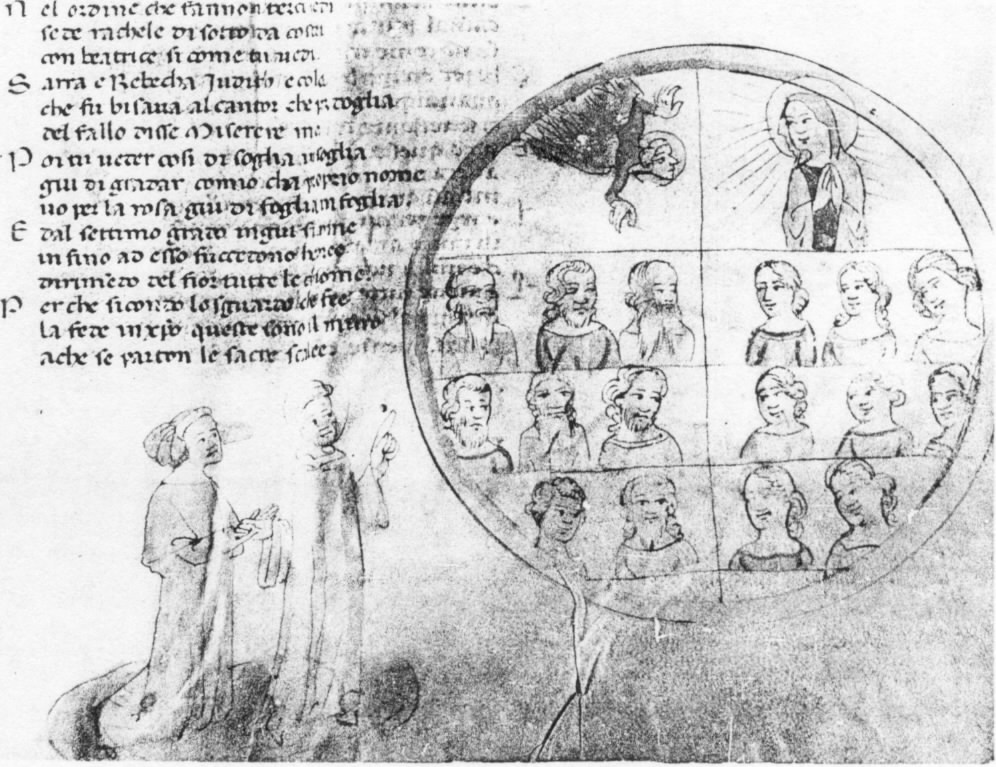 N el ordine che fanno n terci sedi
sede rachele di sotto da costei
con beatrice si come tu vedi
S arra e Rebecha Judith e colei
che fu bisava al cantor che p doglia
del fallo disse Miserere mei
P oi tu veder cosi di soglia in soglia
giu digradar como cha proprio nome
vo per la rosa giu di foglia in foglia
E dal settimo grado in giu si come
in fino ad esso succedono hebree
dirimendo del fior tutte le chiome
P er che sicondo lo sguardo che fee
la fede in xpo queste sono il muro
a che se parton le sacre scalee